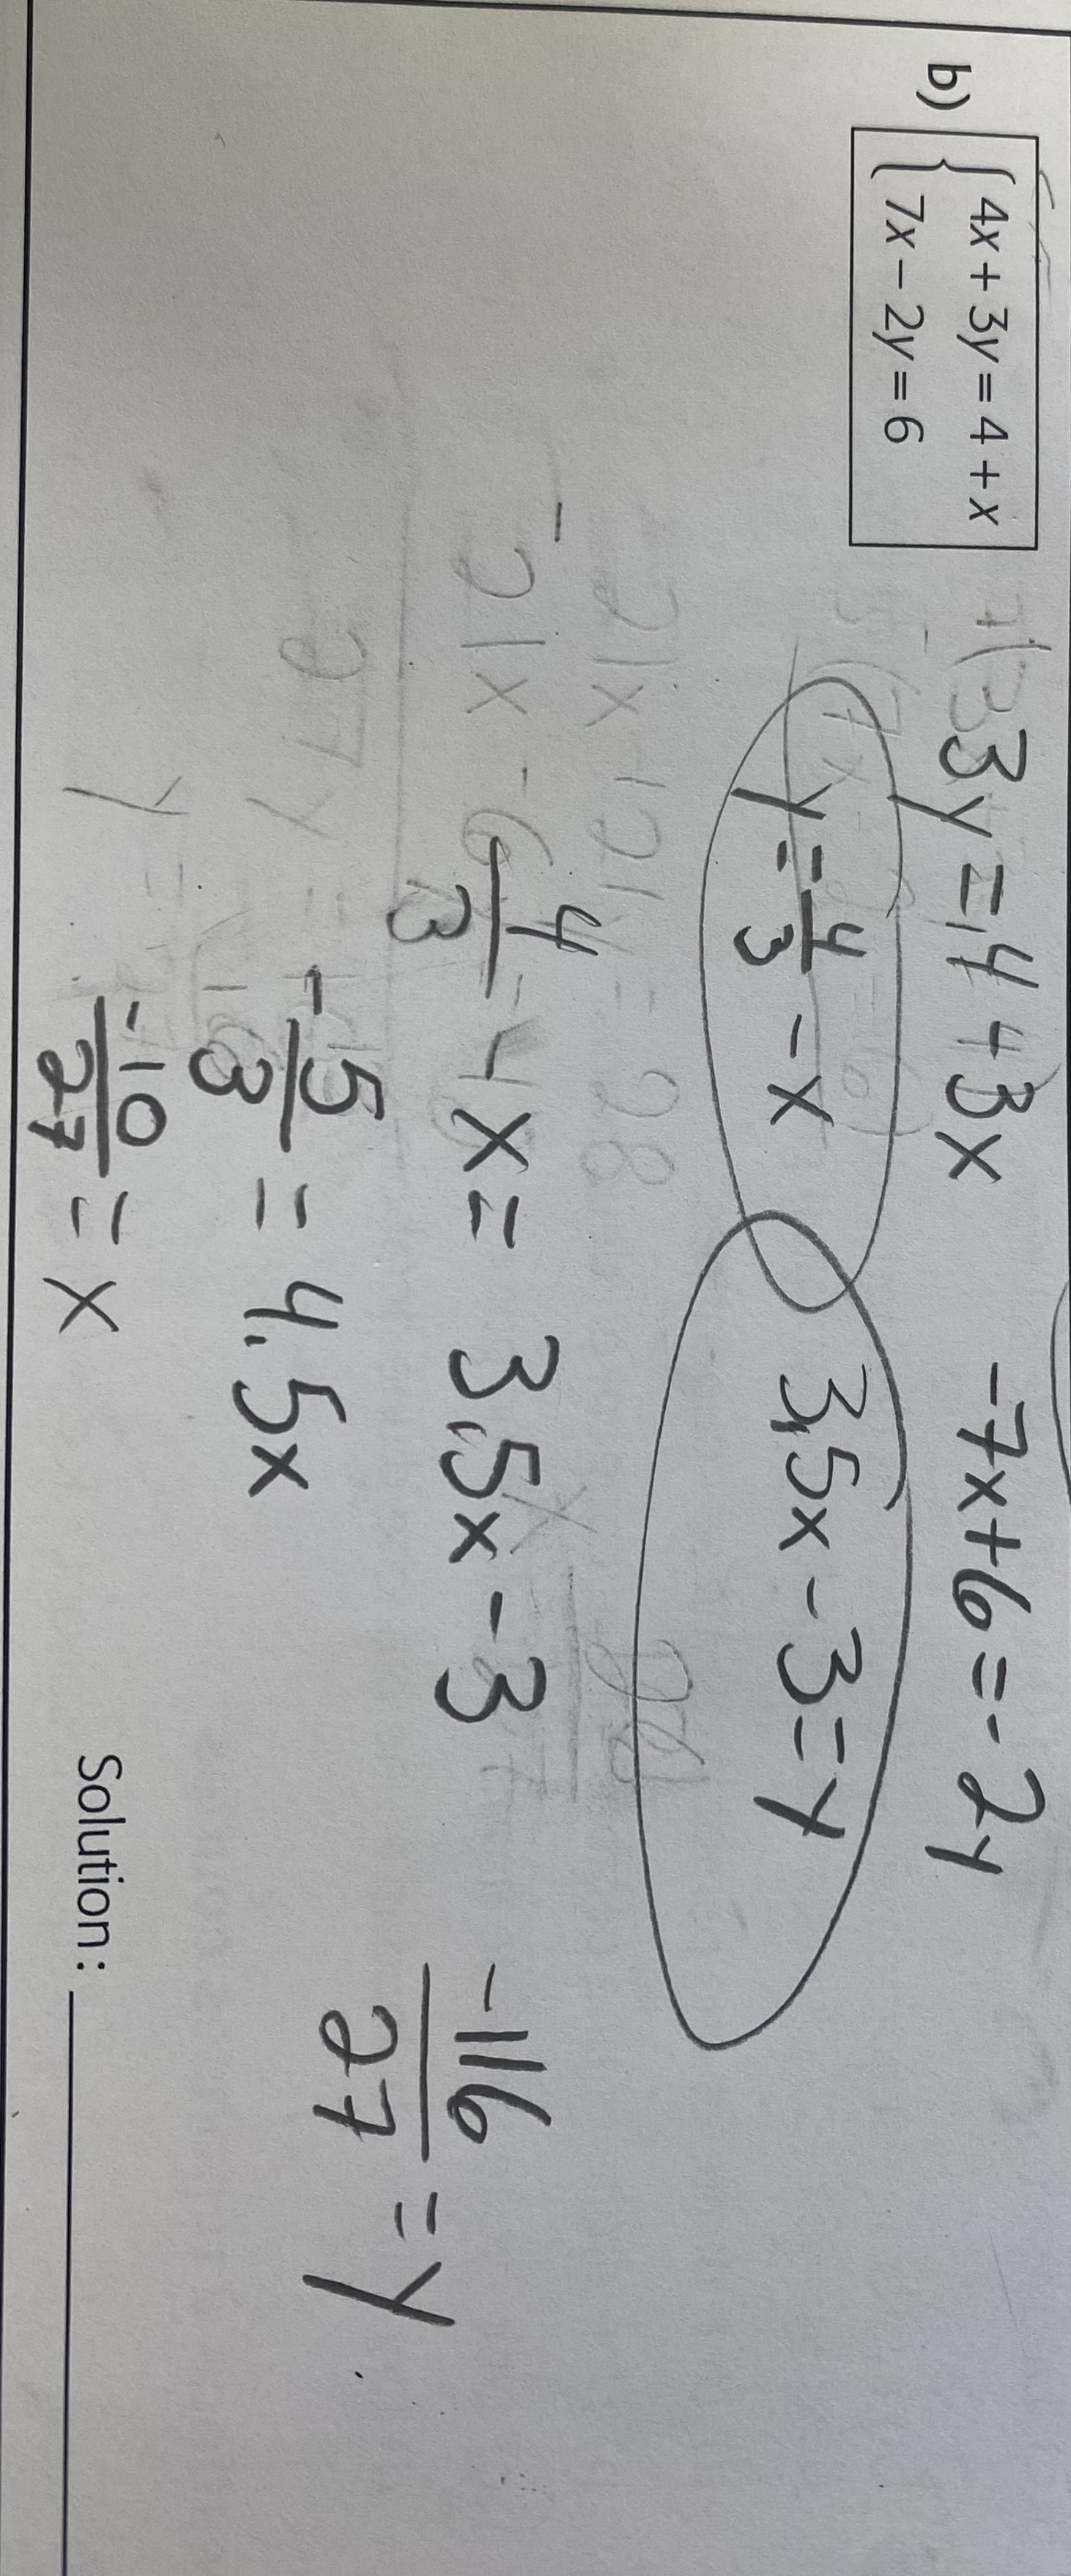 b) { 4x + 3y = 4 + x
7x – 2y = 6
3y = 4 + 3x
-7x + 6 = -2y
y = 4/3 - x
3,5x - 3 = y
4/3 - x = 3,5x - 3
-5/3 = 4,5x
-10/27 = x
-116/27 = y
Solution :